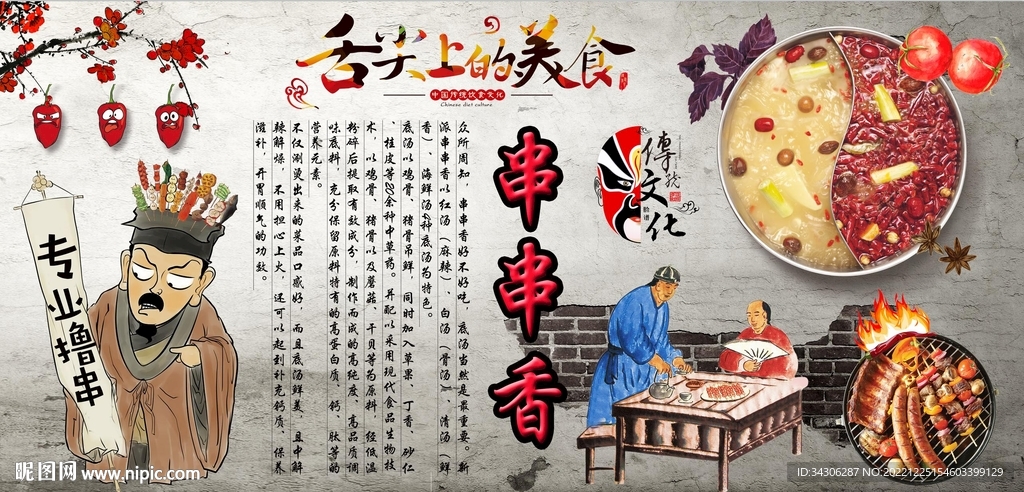 舌尖上的美食
中国传统饮食文化
Chinese diet culture
众所周知，串串香好不好吃，底汤当然是最重要。新
派串串香以红汤（麻辣）白汤（骨汤）清汤（鲜
香）、海鲜汤4种底汤为特色。
底汤以鸡骨、猪骨吊鲜，同时加入草果、丁香、砂仁
、桂皮等20余种中草药。并配以采用现代食品生物技
术，以鸡骨、猪骨以及蘑菇、干贝等为原料，经低温
粉碎后提取有效成分，制作而成的高纯度、高品质调
味底料，充分保留原料特有的高蛋白质、钙、肽等的
营养元素。
不仅涮烫出来的菜品口感好，而且底汤鲜美，且中解
辣解燥，不用担心上火，还可以起到补充钙质、保养
滋补，开胃顺气的功效。
串串香
傳统
文化
脸谱
专业撸串
昵图网 www.nipic.com
ID:34306287 NO:20221225154603399129